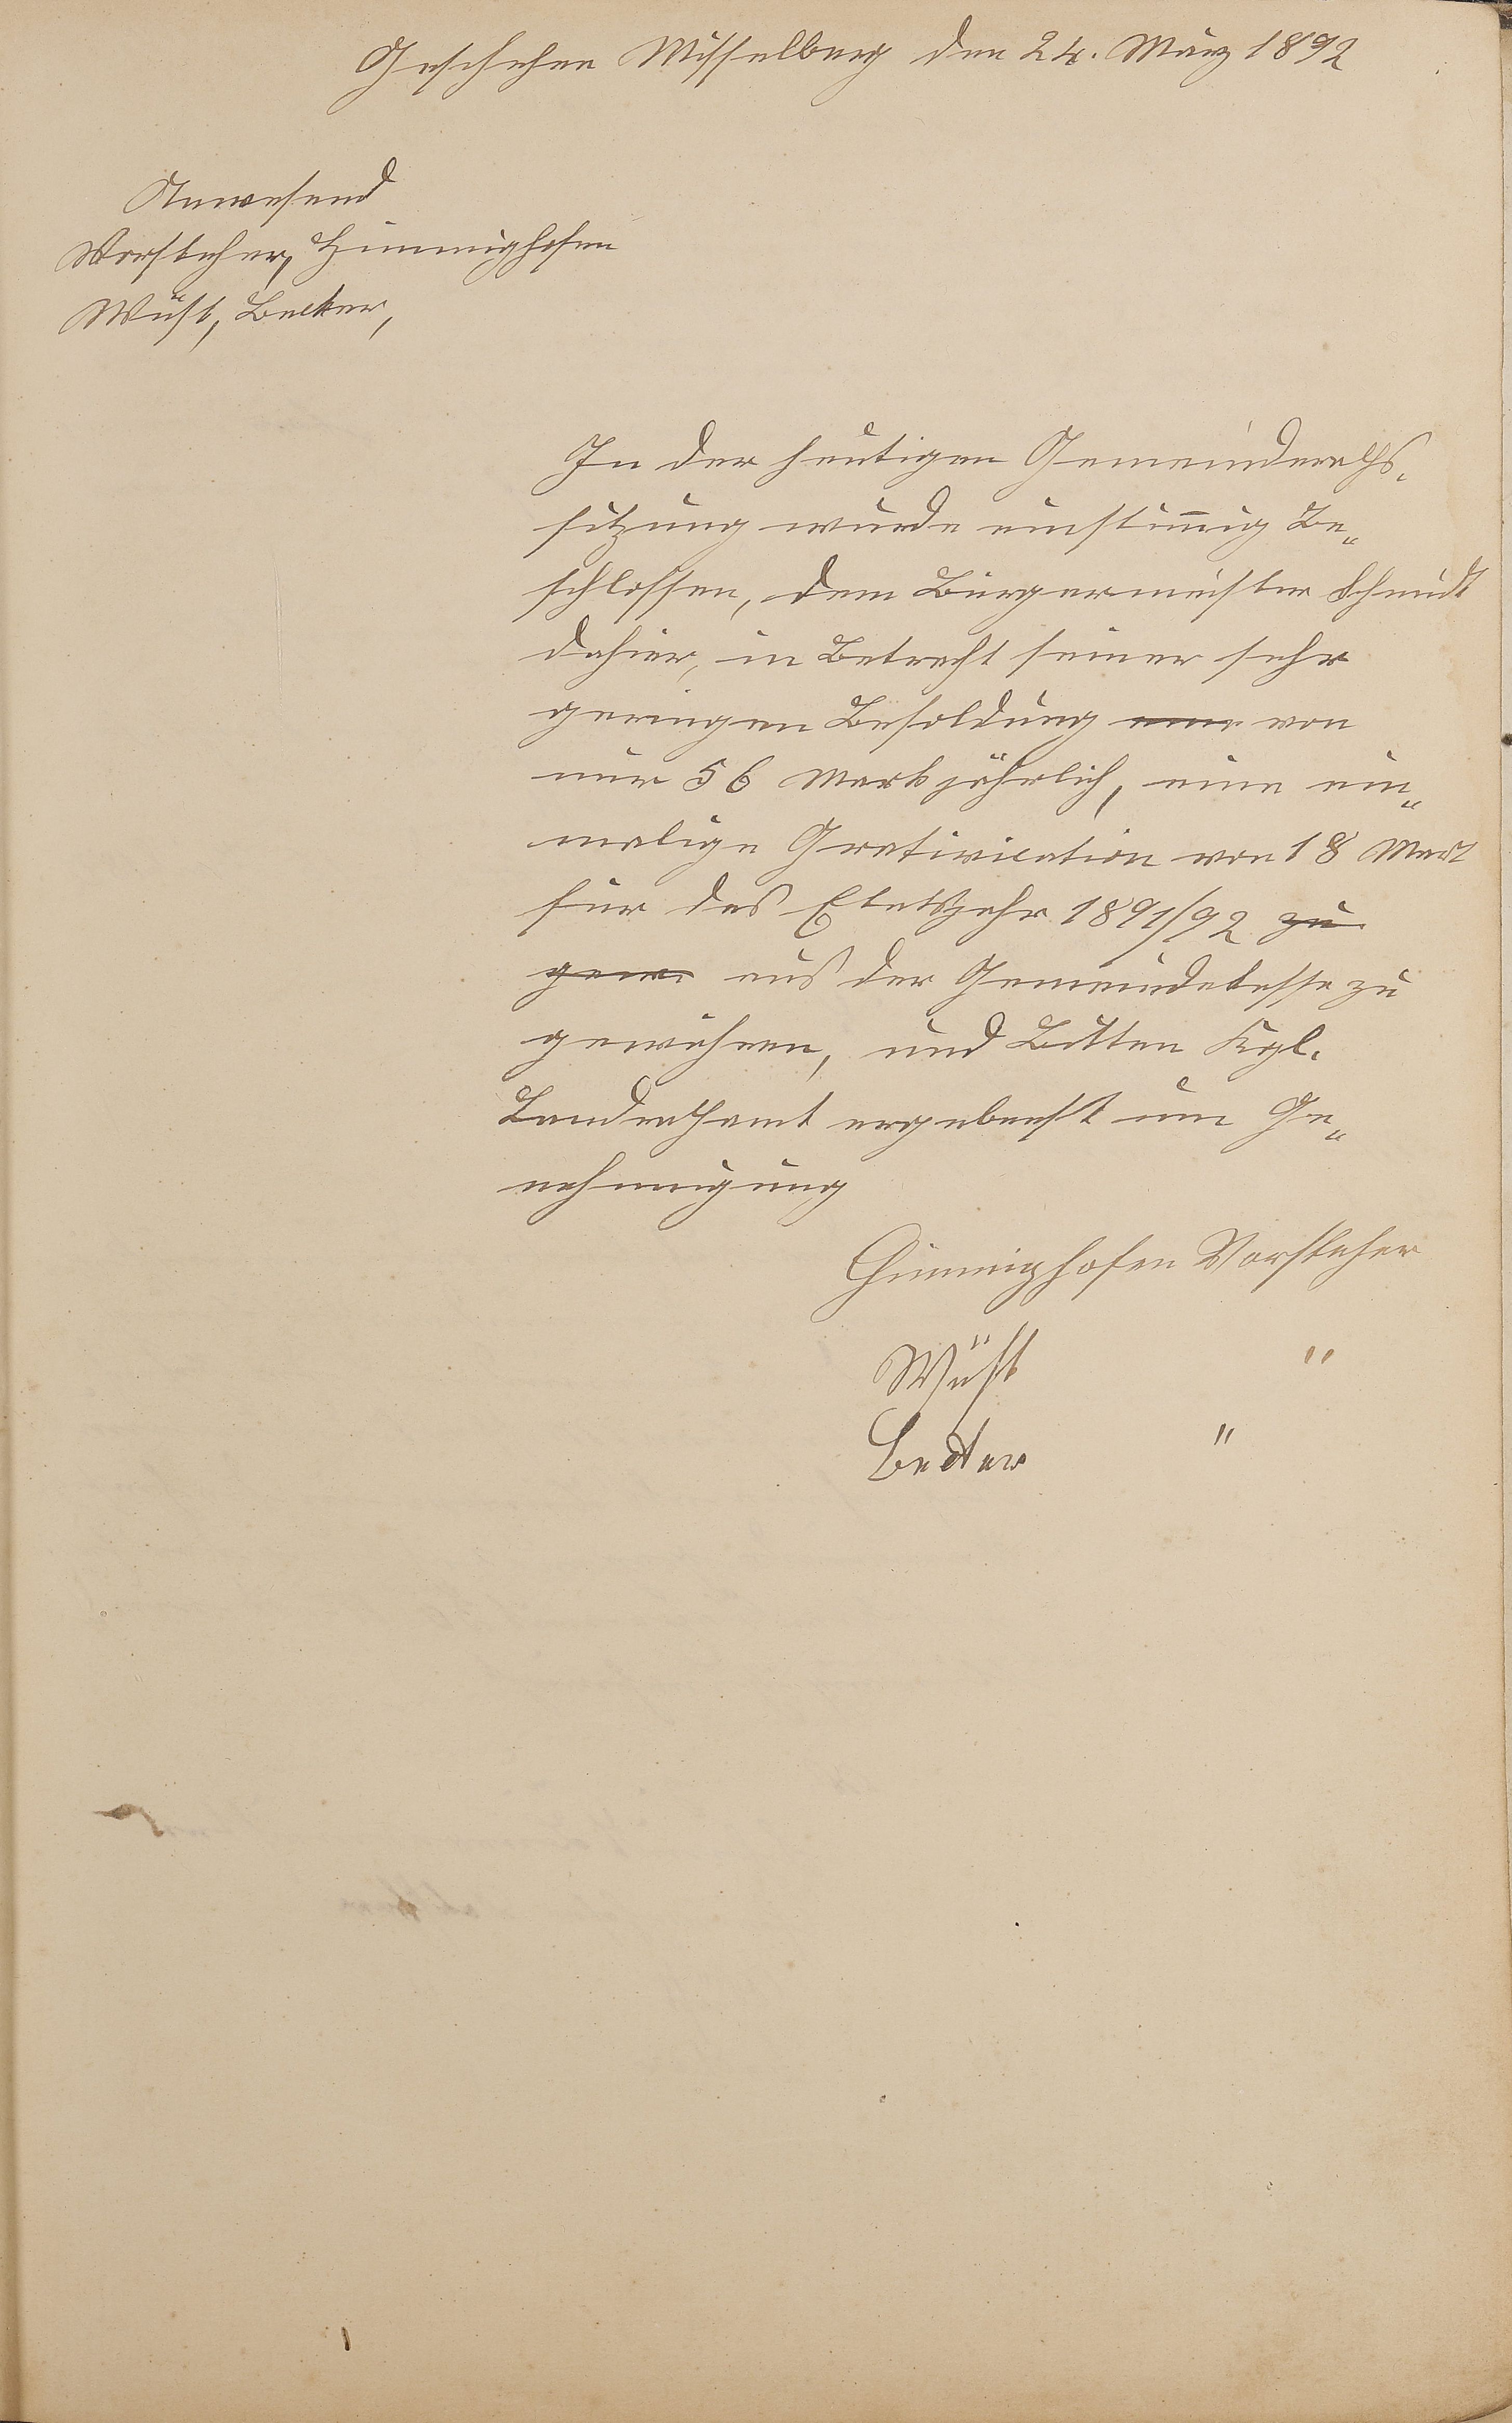 Geschehen Misselberg den 24. März 1892
Anwesend
Vorsteher, Himmighofen
Wüst, Becker,
In der heutigen Gemeinderaths-
sitzung wurde einstim̄ig Be„
schlossen, dem Bürgermeister Schmidt
dahier, in Betracht seiner sehr
geringen Besoldung von
nur 56 Mark jährlich, eine ein„
malige Grativication von 18 Mark
für das Etatsjahr 1891/92 zu
gew aus der Gemeindekasse zu
gewähren, und Bitten Kgl.
Landrathsamt ergebenst um Ge„
nehmigung
Himmighofen Vorsteher
Wüst "
Becker "